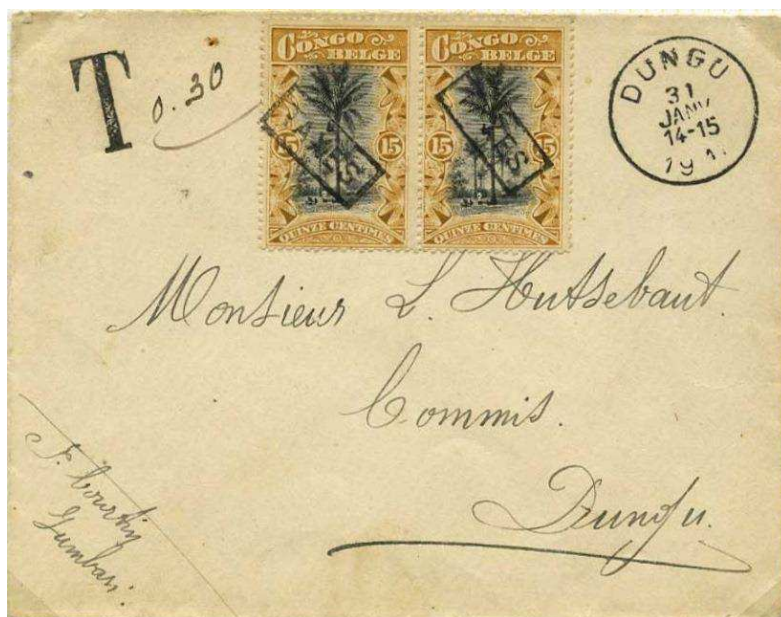 T 0.30
CONGO BELGE
15 15
QUINZE CENTIMES
TAXES
CONGO BELGE
15 15
QUINZE CENTIMES
DUNGU
31
JANV
14-15
Monsieur L. Hutsebaut.
Commis.
Dungu.
Gumbari.